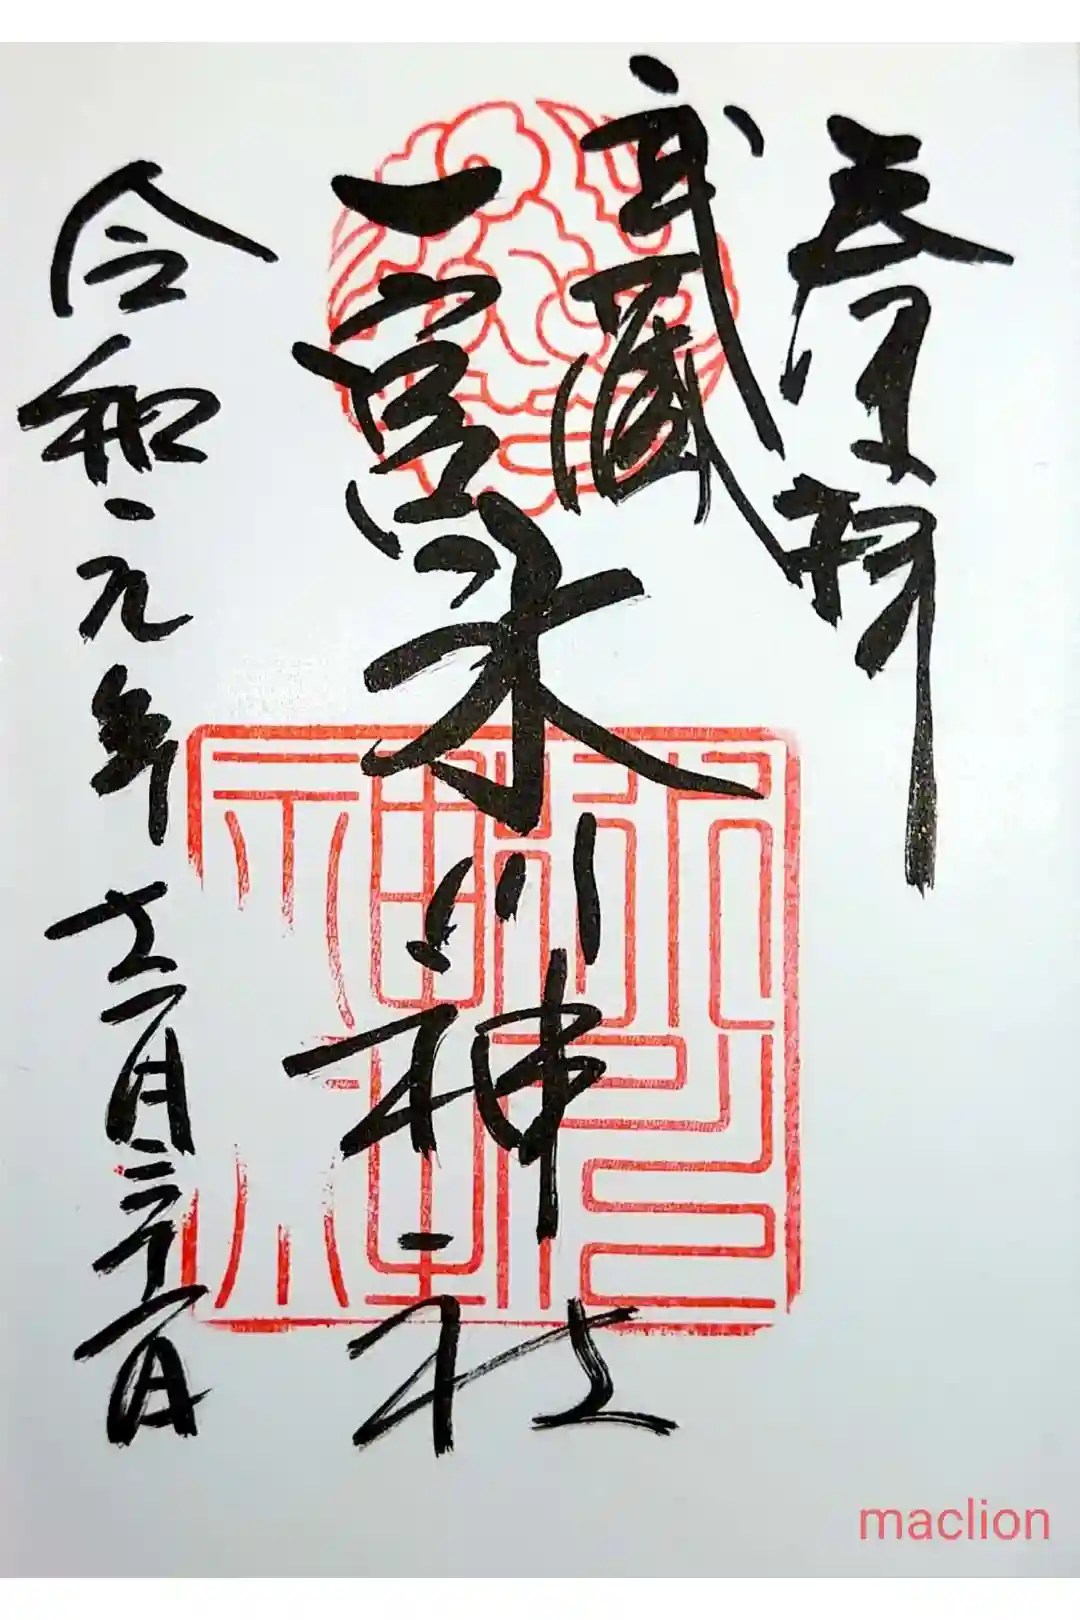 奉拝
武蔵
一宮氷川神社
令和元年十二月二十一日
氷川神社
maclion